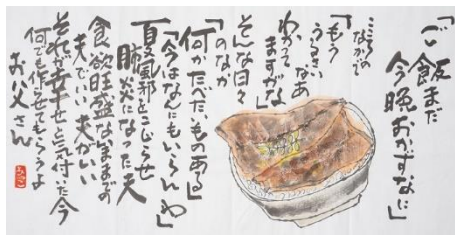 「ご飯まだ
今晩おかずなに」
こころの
なかで
「もう
うるさいなあ
わかってますがな」
そんな日々
のなか
「何かたべたいものある」
「今はなんにもいらんわ」
夏風邪をこじらせ
肺炎になった夫
食欲旺盛なままでの
夫でいい 夫がいい
それが幸せと気付いた今
何でも作らせてもらうよ
お父さん